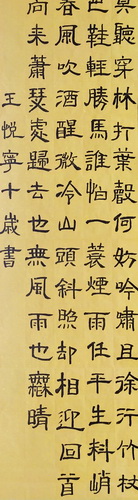 莫聽穿林打葉聲何妨吟嘯且徐行竹杖
芒鞋輕勝馬誰怕一蓑煙雨任平生料峭
春風吹酒醒微冷山頭斜照却相迎回首
向来蕭瑟處歸去也無風雨也無晴
王悅寧十歲書